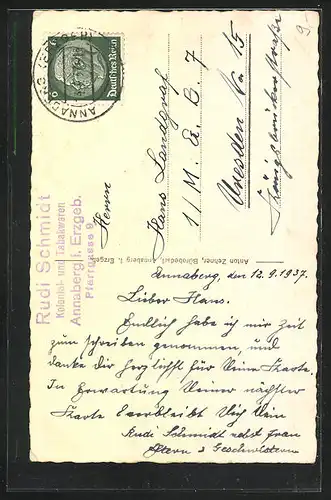 9.-
ANNABERG (ERZGEB)
Deutsches Reich
6
Rudi Schmidt
Kolonial- und Tabakwaren
Annaberg i. Erzgeb.
Pfarrgasse 9
Herrn
Hans Landgraf
11/M. A. B. 7
Dresden No. 15
Königsbrückerstraße
Anton Zehner, Bürobedarf, Annaberg i. Erzgeb.
Annaberg, den 12.9.1937.
Lieber Hans.
Endlich habe ich mir Zeit
zum schreiben genommen, und
danke Dir herzlichst für Deine Karte.
In Erwartung Deiner nächster
Karte verbleibt Dich Dein
Rudi Schmidt nebst Frau
Eltern & Geschwistern